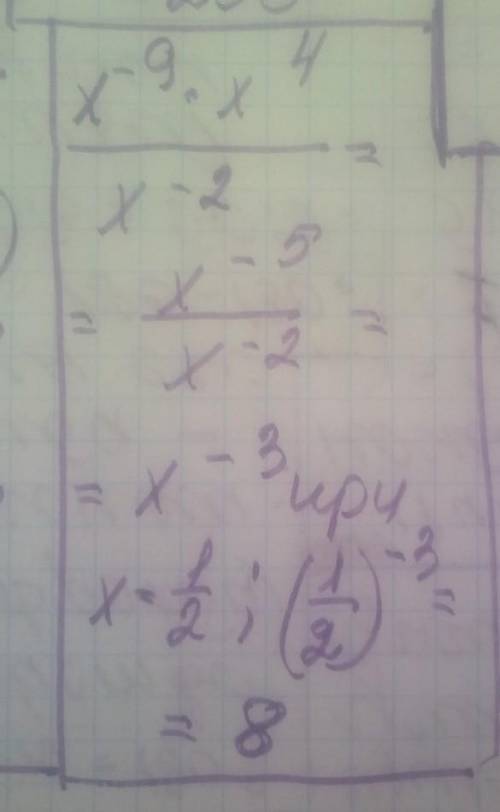 x⁻⁹ · x⁴
x⁻² =
= x⁻⁵
x⁻² =
= x⁻³ при
x = 1/2 ; (1/2)⁻³ =
= 8